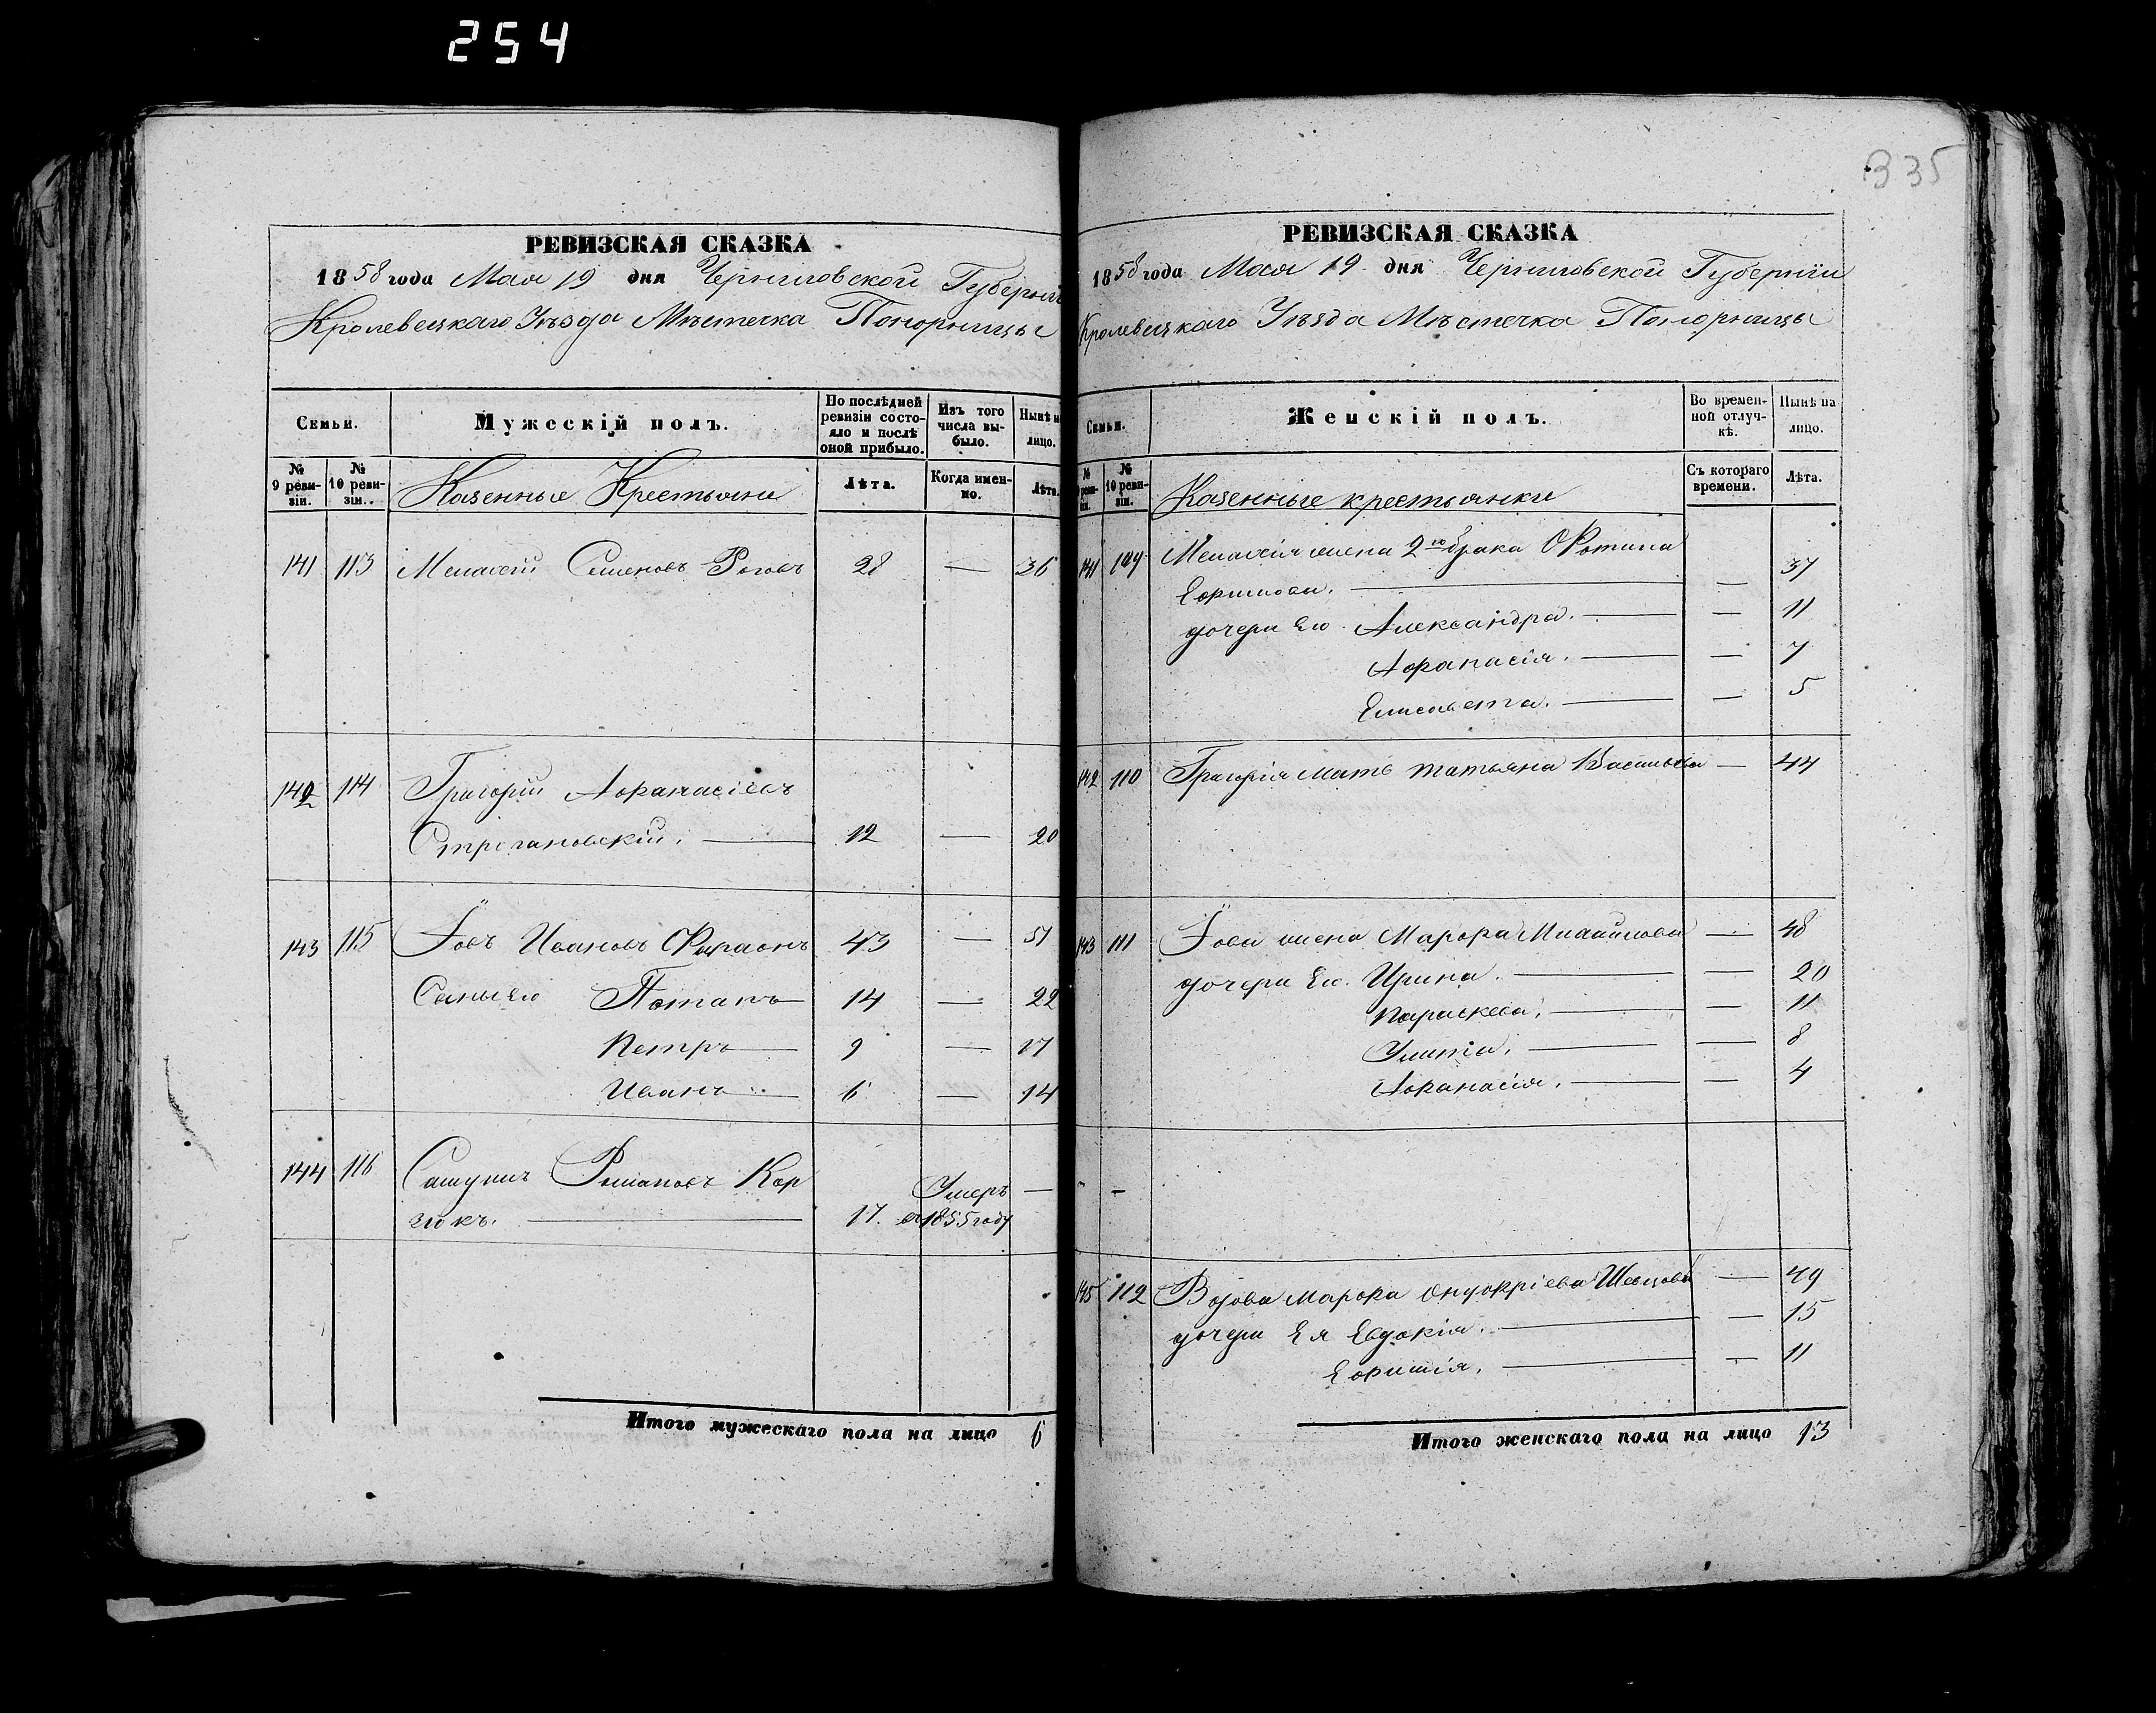 254
335
РЕВИЗСКАЯ СКАЗКА
1858 года Мая 19 дня Черниговской Губерніи
Кролевецкаго Уѣзда Мѣстечка Понорницы
Семьи. Мужескій полъ. По послѣдней ревизіи состояло и послѣ оной прибыло. Изъ того числа выбыло. Нынѣ на лицо.
№ 9 ревизіи. № 10 ревизіи. Казенные Крестьяни Лѣта. Когда именно. Лѣта.
141 113 Семеновъ Роговъ 28 — 36
142 114 Григорій Афанасіевъ
Строгановскій. — 12 — 20
143 115 Іовъ Ивановъ 43 — 51
Сыны его Потапъ 14 — 22
Петръ 9 — 17
Иванъ 6 — 14
144 116 Романовъ Кор Умеръ —
17. въ 1855 году
Итого мужескаго пола на лицо 6
РЕВИЗСКАЯ СКАЗКА
1858 года Мая 19 дня Черниговской Губерніи
Кролевецкаго Уѣзда Мѣстечка Понорницы
Семьи. Женскій полъ. Во временной отлучкѣ. Нынѣ на лицо.
№ 9 ревизіи. № 10 ревизіи. Казенные крестьянки Съ котораго времени. Лѣта.
141 109 жена 2го брака Фотина
Ефимова. — — 37
дочери Его Александра. — — 11
Афанасія. — — 7
Елисавета. — — 5
142 110 Григорія мать Татьяна Васильева — 44
143 111 Іова жена Марфа Михайлова — 48
дочери Его. Ирина. — — 20
Параскева. — — 11
Улита. — — 8
Афанасія. — — 4
- -
145 112 Вдова Марфа Онуфріева Шевцова — 49
дочери Ея Евдокія. — — 15
Ефимія. — — 11
Итого женскаго пола на лицо 13